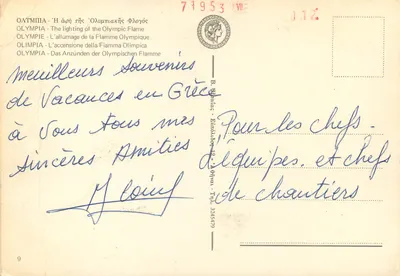 ΟΛΥΜΠΙΑ - Ἡ ἀφὴ τῆς Ὀλυμπιακῆς Φλογός
OLYMPIA - The lighting of the Olympic Flame
OLYMPIE - L'allumage de la Flamme Olympique
OLIMPIA - L'accensione della Fiamma Olimpica
OLYMPIA - Das Anzünden der Olympischen Flamme
71953
meuilleurs souvenirs
de vacances en Grèce
à vous tous mes
sincères Amitiés
Pour les chefs
d'équipes et chefs
de chantiers
9